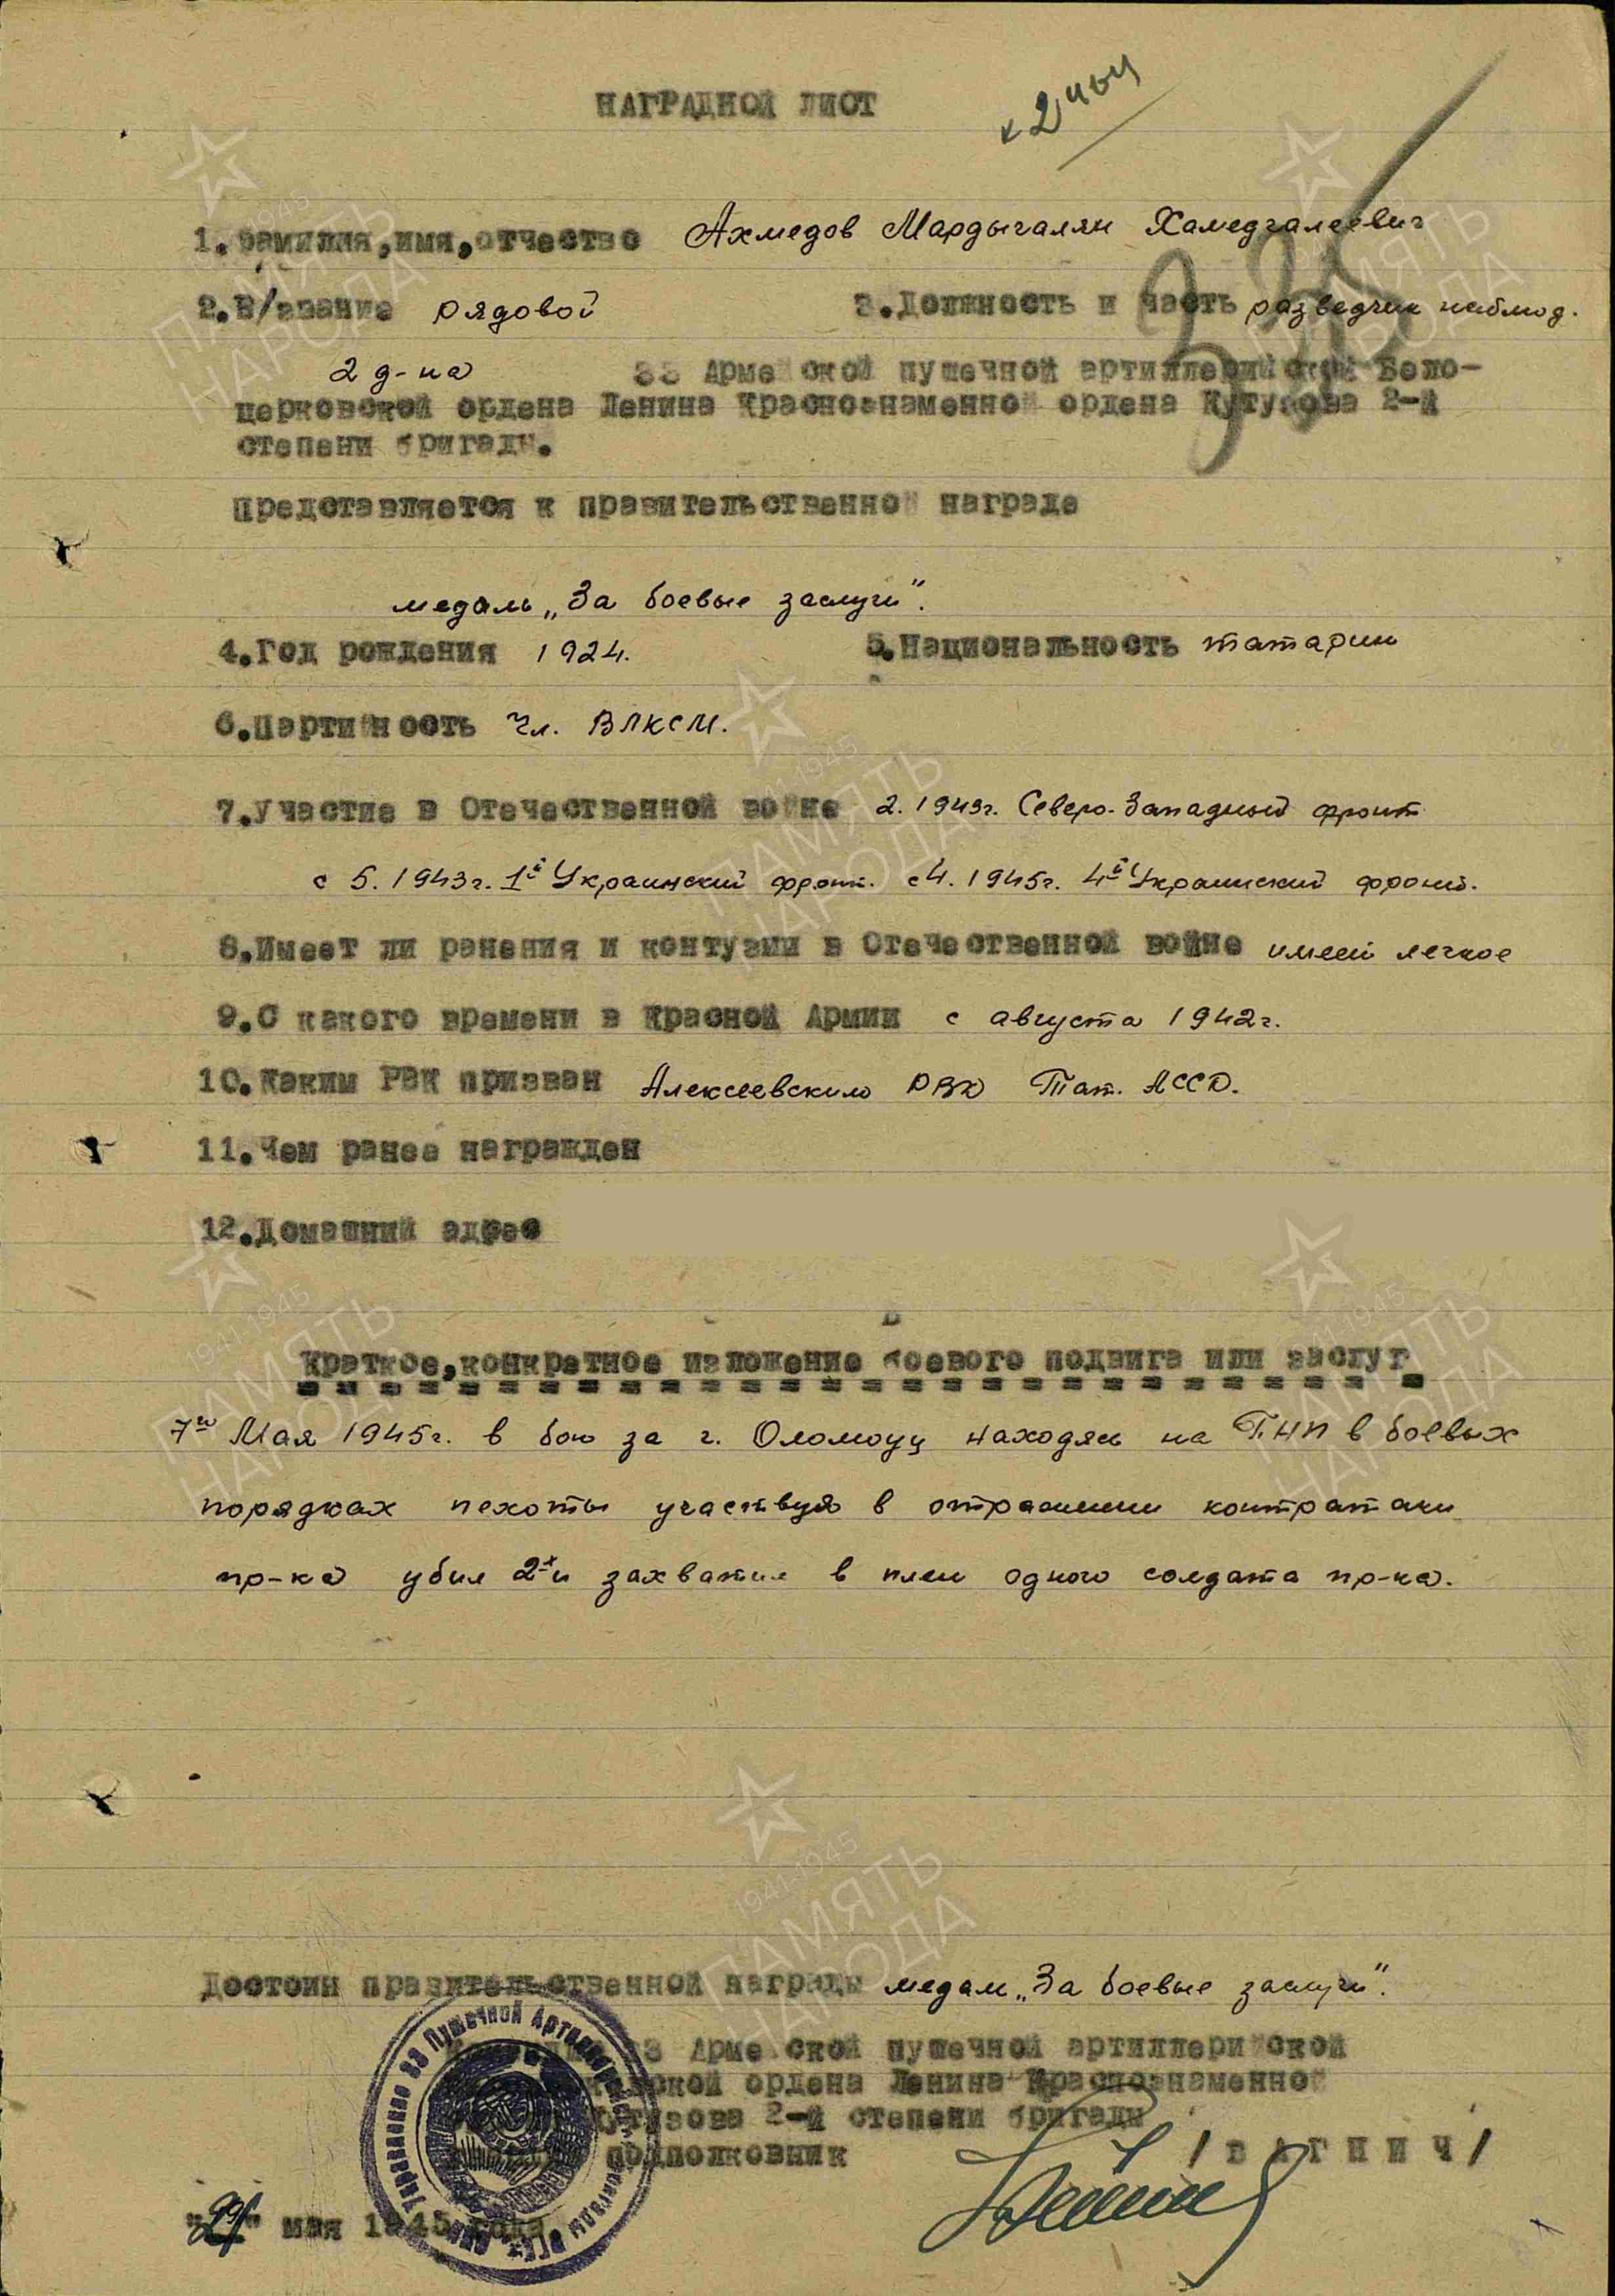 НАГРАДНОЙ ЛИСТ
1.Фамилия,имя,отчество Ахмедов Мардыгалян Хамедгалеевич
2.В/звание рядовой 3.Должность и часть разведчик наблюд.
2 д-на 33 Армейской пушечной артиллерийской Бело-
церковской ордена Ленина Краснознаменной ордена Кутузова 2-й
степени бригады.
Представляется к правительственной награде
медаль „За боевые заслуги".
4.Год рождения 1924. 5.Национальность татарин
6.Партийность Чл. ВЛКСМ.
7.Участие в Отечественной войне 2.1943г. Северо-Западный фронт
с 5.1943г. 1й Украинский фронт. с 4.1945г. 4й Украинский фронт.
8.Имеет ли ранения и контузии в Отечественной войне имеет легкое
9.С какого времени в Красной Армии с августа 1942г.
10.Каким РВК призван Алексеевским РВК Тат. АССР.
11.Чем ранее награжден
12.Домашний адрес
Краткое,конкретное изложение боевого подвига или заслуг
7го Мая 1945г. в бою за г. Оломоуц находясь на ПНП в боевых
порядках пехоты участвуя в отражении контратаки
пр-ка убил 2х и захватил в плен одного солдата пр-ка.
Достоин правительственной награды медали „За боевые заслуги".
33 Армейской пушечной артиллерийской
ордена Ленина Краснознаменной
Кутузова 2-й степени бригады
подполковник /ВАГНИЧ/
"29" мая 1945 года
1941-1945
ПАМЯТЬ
НАРОДА